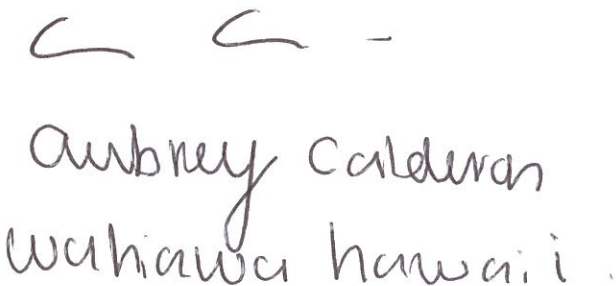 aubrey calderon
wahiawa hawaii.